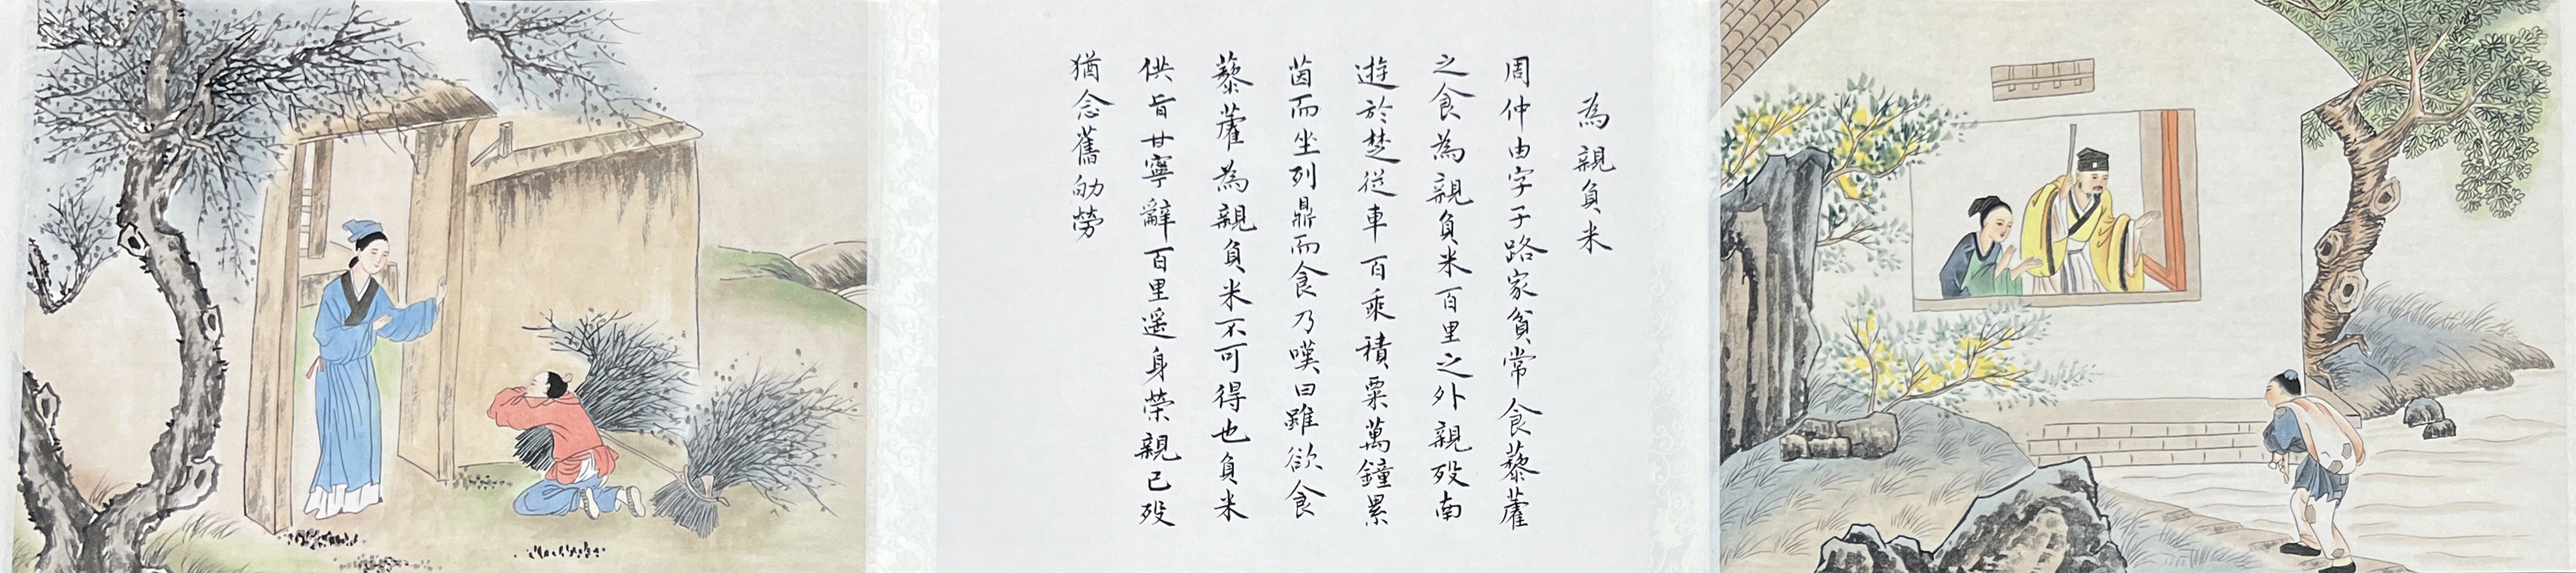 為親負米
周仲由字子路家貧常食藜藿
之食為親負米百里之外親歿南
遊於楚從車百乘積粟萬鐘累
茵而坐列鼎而食乃嘆曰雖欲食
藜藿為親負米不可得也負米
供旨甘寧辭百里遥身榮親已歿
猶念舊劬勞